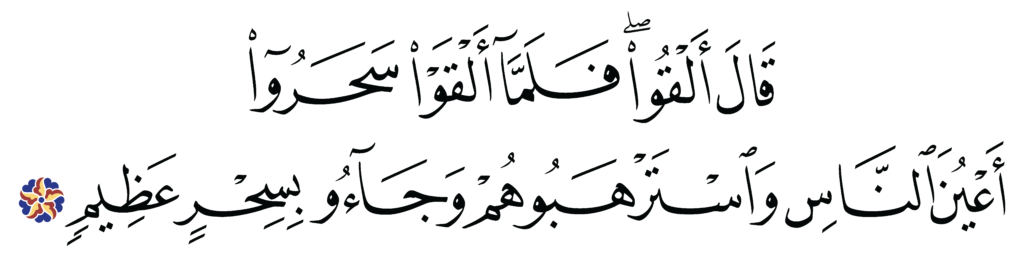 قَالَ أَلْقُوا۟ ۖ فَلَمَّآ أَلْقَوْا۟ سَحَرُوٓا۟
أَعْيُنَ ٱلنَّاسِ وَٱسْتَرْهَبُوهُمْ وَجَآءُو بِسِحْرٍ عَظِيمٍ